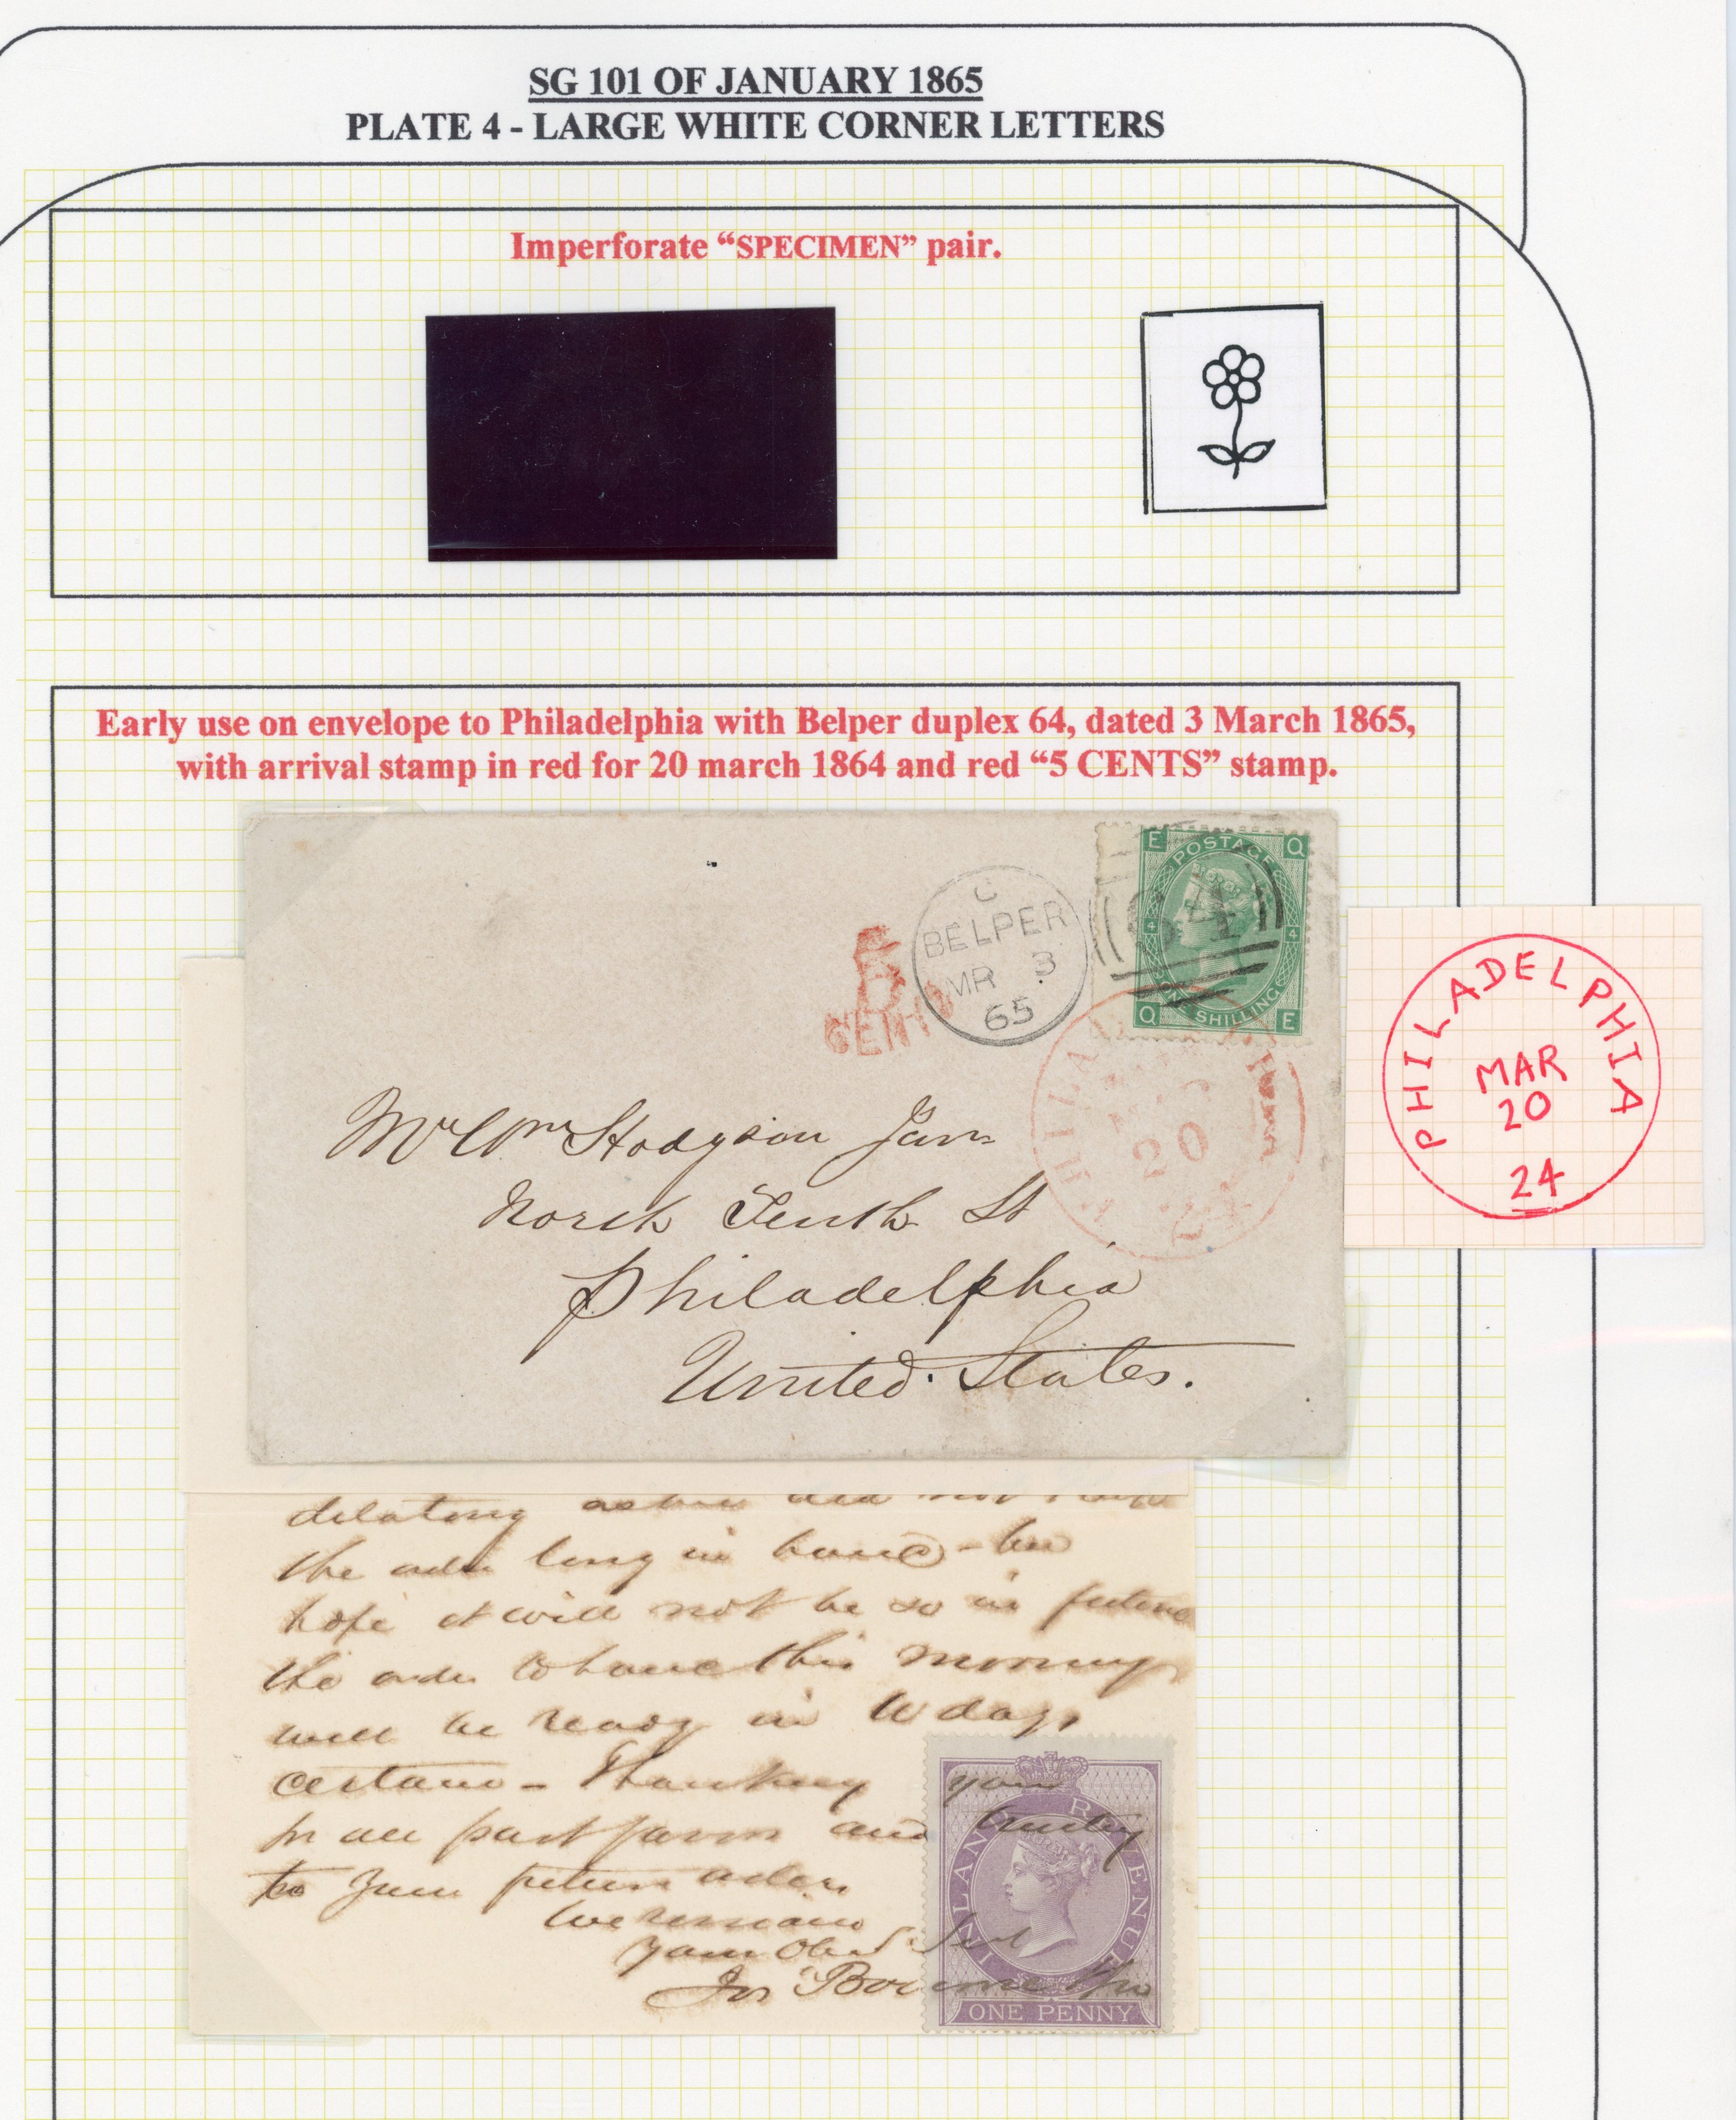 SG 101 OF JANUARY 1865
PLATE 4 - LARGE WHITE CORNER LETTERS
Imperforate “SPECIMEN” pair.
Early use on envelope to Philadelphia with Belper duplex 64, dated 3 March 1865,
with arrival stamp in red for 20 march 1864 and red “5 CENTS” stamp.
E Q
POSTAGE
4 4
ONE SHILLING
Q E
C
BELPER
MR 3
65
5
CENTS
20
PHILADELPHIA
MAR
20
24
Mr Wm Hodgson Jun
North Tenth St
Philadelphia
United States.
did not
the order long in hand -
hope it will not be so in future
the order to hand this morning
will be ready in 10 days
certain - Thanking you
for all past favors and trusting
to future orders
We remain
your Obed Sert
Jos Bourne & Son
INLAND REVENUE
ONE PENNY